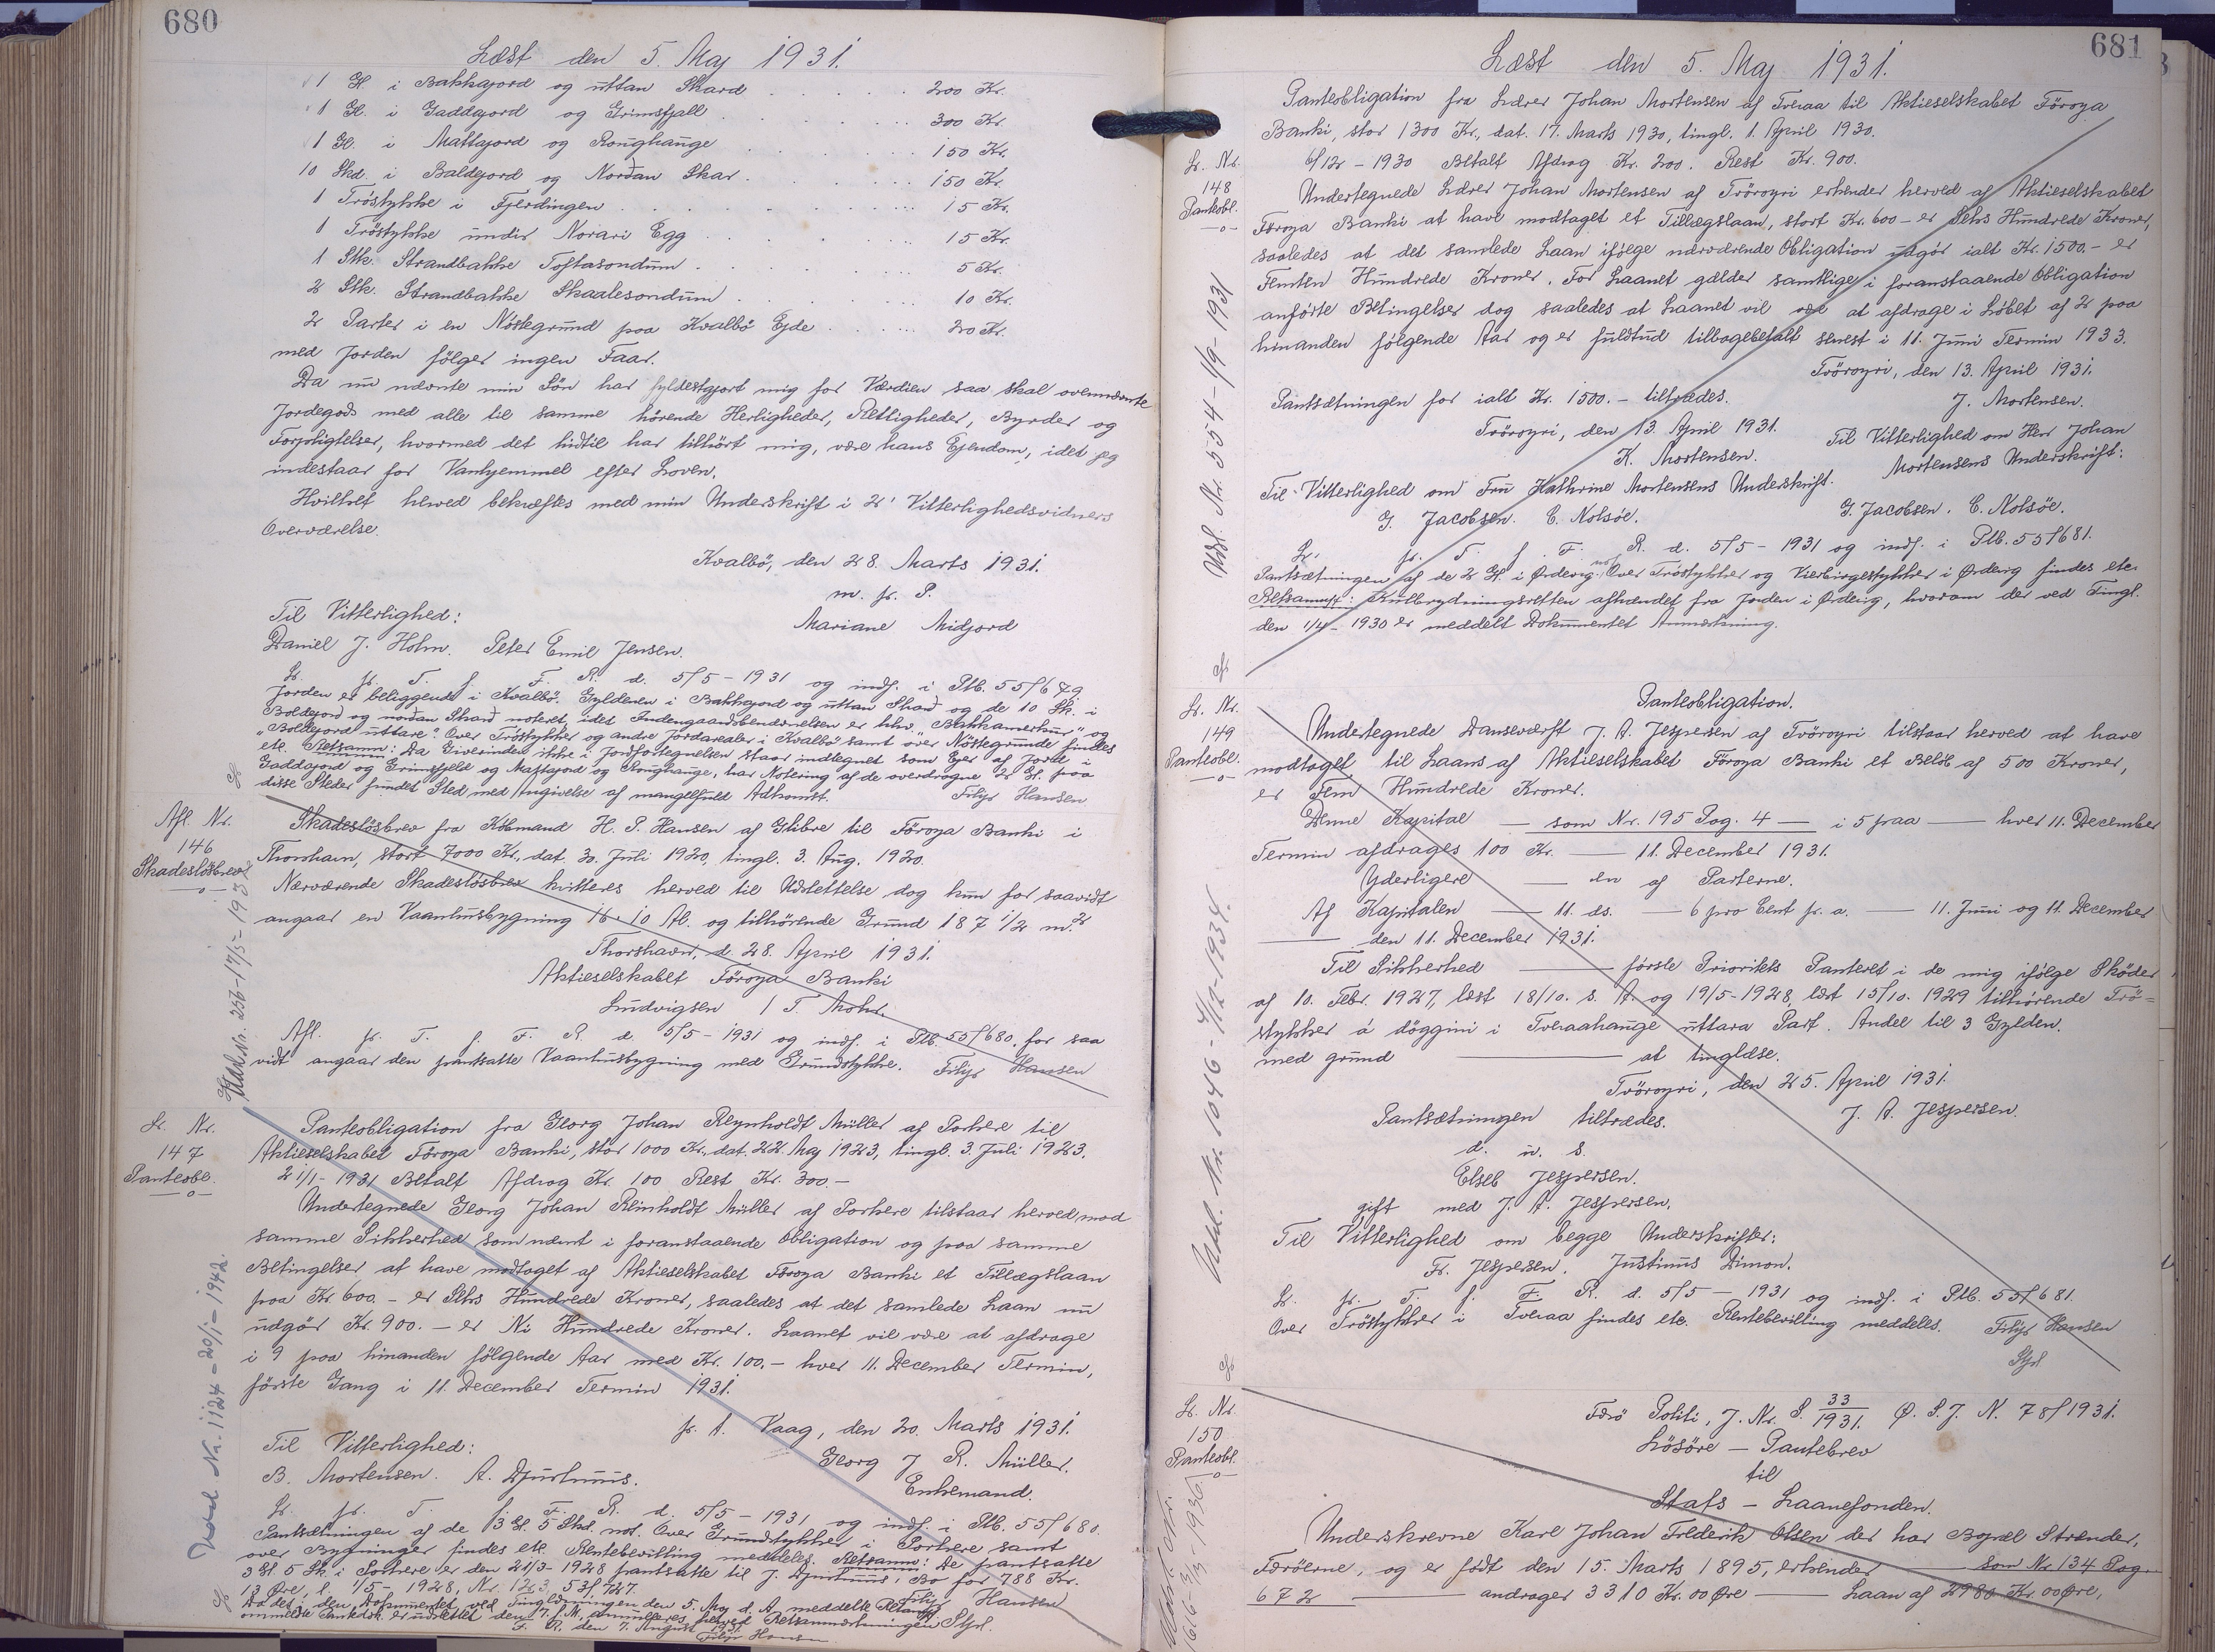 680
Læst den 5. Maj 1931.
1 Gl. i Bakkajord og uttan Skard . . . . . 200 Kr.
1 Gl. i Gaddajord og Grimsfjall . . . . . 300 Kr.
1 Gl. i Mattajord og Rounghauge . . . . . 150 Kr.
10 Skd. i Boldejord og Nordan Skar . . . . . 150 Kr.
1 Tröstykke i Fjerdingen . . . . . 15 Kr.
1 Tröstykke undir Norari Egg . . . . . 15 Kr.
1 Stk. Strandbakke Toftasondum . . . . . 5 Kr.
2 Stk. Strandbakke Skaalesondum . . . . . 10 Kr.
2 Parter i en Nöstegrund paa Kvalbö Ejde . . . . . 20 Kr.
med Jorden fölger ingen Faar.
Da nu nævnte min Sön har fyldestgjort mig for Værdien saa skal ovennævnte
Jordegods med alle til samme hörende Herligheder, Rettigheder, Byrder og
Forpligtelser, hvormed det hidtil har tilhört mig, være hans Ejendom, idet jeg
indestaar for Vanhjemmel efter Loven.
Hvilket herved bekræftes med min Underskrift i 2' Vitterlighedsvidners
Overværelse.
Kvalbö, den 28. Marts 1931.
m. p. P.
Mariane Midjord
Til Vitterlighed:
Daniel J. Holm. Peter Emil Jensen.
Lr. p. T. f. F. R. d. 5/5 - 1931 og indf. i Ptb. 55/679
Jorden er beliggende i Kvalbö. Gylderen i Bakkajord og uttan Skard og de 10 Sk. i
Boldejord og nordan Skard noteret, idet Indengaardsbenævnelsen er hhv. "Bakkamerkur" og
"Boldejord uttare". Over Tröstykker og andre Jordarealer i Kvalbö samt over Nöstegrunde findes
ete. Retsanm: Da Giverinden ikke i Jordfortegnelsen staar indtegnet som Ejer af Jord i
Gaddajord og Grimsfjeld og Mattajord og Rounghauge, har Notering af de overdragne 2 Gl. paa
disse Steder fundet Sted med Angivelse af mangelfuld Adkomst. Filip Hansen
Afl. Nr.
146
Skadeslösbrev
Skadeslösbrev fra Köbmand H. P. Hansen af Glibre til Föroya Banki i
Thorshavn, stort 7000 Kr., dat. 30. Juli 1920, tingl. 3. Aug. 1920.
Nærværende Skadeslösbrev kvitteres herved til Udslettelse dog kun for saavidt
angaar en Vaanhusbygning 16 · 10 Al. og tilhörende Grund 187 1/2 m.²
Thorshavn, d. 28. April 1931.
Aktieselskabet Föroya Banki
Ludvigsen / T. Mohr.
Afl. p. T. f. F. R. d. 5/5 - 1931 og indf. i Ptb. 55/680, for saa
vidt angaar den pantsatte Vaanhusbygning med Grundstykke. Filip Hansen
Lr. Nr.
147
Panteobl.
Panteobligation fra Georg Johan Reynholdt Müller af Porkere til
Aktieselskabet Föroya Banki, stor 1000 Kr., dat. 22. Maj 1923, tingl. 3. Juli 1923.
21/1 - 1931 Betalt Afdrag Kr. 100 Rest Kr. 300.-
Undertegnede Georg Johan Reinholdt Müller af Porkere tilstaar herved, mod
samme Sikkerhed som nævnt i foranstaaende Obligation og paa samme
Betingelser at have modtaget af Aktieselskabet Föroya Banki et Tillægslaan
paa Kr. 600.- er Seks Hundrede Kroner, saaledes at det samlede Laan nu
udgör Kr. 900.- er Ni Hundrede Kroner. Laanet vil være at afdrage
i 9 paa hinanden fölgende Aar med Kr. 100.- hver 11. December Termin,
förste Gang i 11. December Termin 1931.
p. t. Vaag, den 20. Marts 1931.
Georg J R. Müller.
Enkemand.
Til Vitterlighed:
B. Mortensen. A. Djurhuus.
Lr. p. T. f. F. R. d. 5/5 - 1931 og indf. i Ptb. 55/680.
Pantsætningen af de 3 Gl. 5 Skd. not. Over Grundstykker i Porkere samt
over Bygninger findes ete. Rentebevilling meddeles. Retsanm: De pantsatte
3 Gl. 5 Sk. i Porkere er den 21/3 - 1928 pantsatte til J. Djurhuus' Bo for 788 Kr.
13 Øre, l. 1/5 - 1928, Nr. 123, 53/727. Filip Hansen
Da det i den Dokumentet ved Tinglæsningen den 5. Maj d. A. meddelte Retsanm.
ommeldte Pantedok. er udslettet den 17. f. M. annulleres herved Retsanmærkningen. Stpl.
F. R. den 7. August 1931.
Filip Hansen
681
Læst den 5. Maj 1931.
Panteobligation fra Lærer Johan Mortensen af Tveraa til Aktieselskabet Föroya
Banki, stor 1300 Kr., dat. 17. Marts 1930, tingl. 1. April 1930.
6/12 - 1930 Betalt Afdrag Kr. 200. Rest Kr. 900.
Lr. Nr.
148
Panteobl.
Undertegnede Lærer Johan Mortensen af Tvöroyri erkender herved af Aktieselskabet
Föroya Banki at have modtaget et Tillægslaan, stort Kr. 600 - er Seks Hundrede Kroner,
saaledes at det samlede Laan ifölge nærværende Obligation udgör ialt Kr. 1500.- er
Femten Hundrede Kroner. For Laanet gælder samtlige i foranstaaende Obligation
anförte Betingelser dog saaledes at Laanet vil være at afdrage i Löbet af 2 paa
hinanden fölgende Aar og er fuldtud tilbagebetalt senest i 11. Juni Termin 1933.
Tvöroyri, den 13. April 1931.
J. Mortensen.
Pantsætningen for ialt Kr. 1500.- tiltrædes.
Tvöroyri, den 13. April 1931.
K. Mortensen.
Til Vitterlighed om Herr Johan
Mortensens Underskrift:
Til Vitterlighed om Fru Kathrine Mortensens Underskrift.
G. Jacobsen. C. Nolsöe. G. Jacobsen. C. Nolsöe.
Lr. p. T. f. F. R. d. 5/5 - 1931 og indf. i Ptb. 55/681.
Pantsætningen af de 2 Gl. i Ørdevig not. Over Tröstykker og Vierbirgestykker i Ørdevig findes ete.
Retsanm: Kulbrydningsretten afhændet fra Jorden i Ørdevig, hvorom der ved Tingl.
den 1/4 - 1930 er meddelt Dokumentet Anmærkning.
Lr. Nr.
149
Panteobl.
Panteobligation.
Undertegnede Danseværft J. A. Jespersen af Tvöroyri tilstaar herved at have
modtaget til Laans af Aktieselskabet Föroya Banki et Belöb af 500 Kroner,
er Fem Hundrede Kroner.
Denne Kapital — som Nr. 195 Pag. 4 — i 5 paa — hver 11. December
Termin afdrages 100 Kr. — 11. December 1931.
Yderligere — en af Parterne.
Af Kapitalen — 11. ds. — 6 pro Cent p. a. — 11. Juni og 11. December
— den 11. December 1931.
Til Sikkerhed — förste Prioritets Panteret i de mig ifölge Sköder
af 10. Febr. 1927, læst 18/10. s. A. og 19/5-1928, læst 15/10. 1929 tilhörende Trö=
stykker á döggini i Tveraahauge uttara Part. Andel til 3 Gylden.
med grund — at tinglæse.
Tvöroyri, den 25. April 1931.
Pantsætningen tiltrædes. J. A. Jespersen.
d. u. S.
Elseb Jespersen.
gift med J. A. Jespersen.
Til Vitterlighed om begge Underskrifter:
Fr. Jespersen. Justinus Dimon.
Lr. p. T. f. F. R. d. 5/5 - 1931 og indf. i Ptb. 55/681.
Over Tröstykker i Tveraa findes ete. Rentebevilling meddeles. Filip Hansen
Stpl
Lr. Nr.
150
Panteobl.
Færö Politi, J. Nr. S. 33/1931. Ø. S. J. N. 78/1931.
Lösöre - Pantebrev
til
Stats - Laanefonden.
Underskrevne Karl Johan Frederik Olsen der har Bopæl Strænder,
Færöerne, og er födt den 15. Marts 1895, erkender — som Nr. 134 Pag.
672 — andrager 3310 Kr. 00 Øre — Laan af 2980 Kr. 00 Øre,
Udsl. Nr. 554 - 1/9 - 1931
Udsl. Nr. 1046 - 4/12 - 1934.